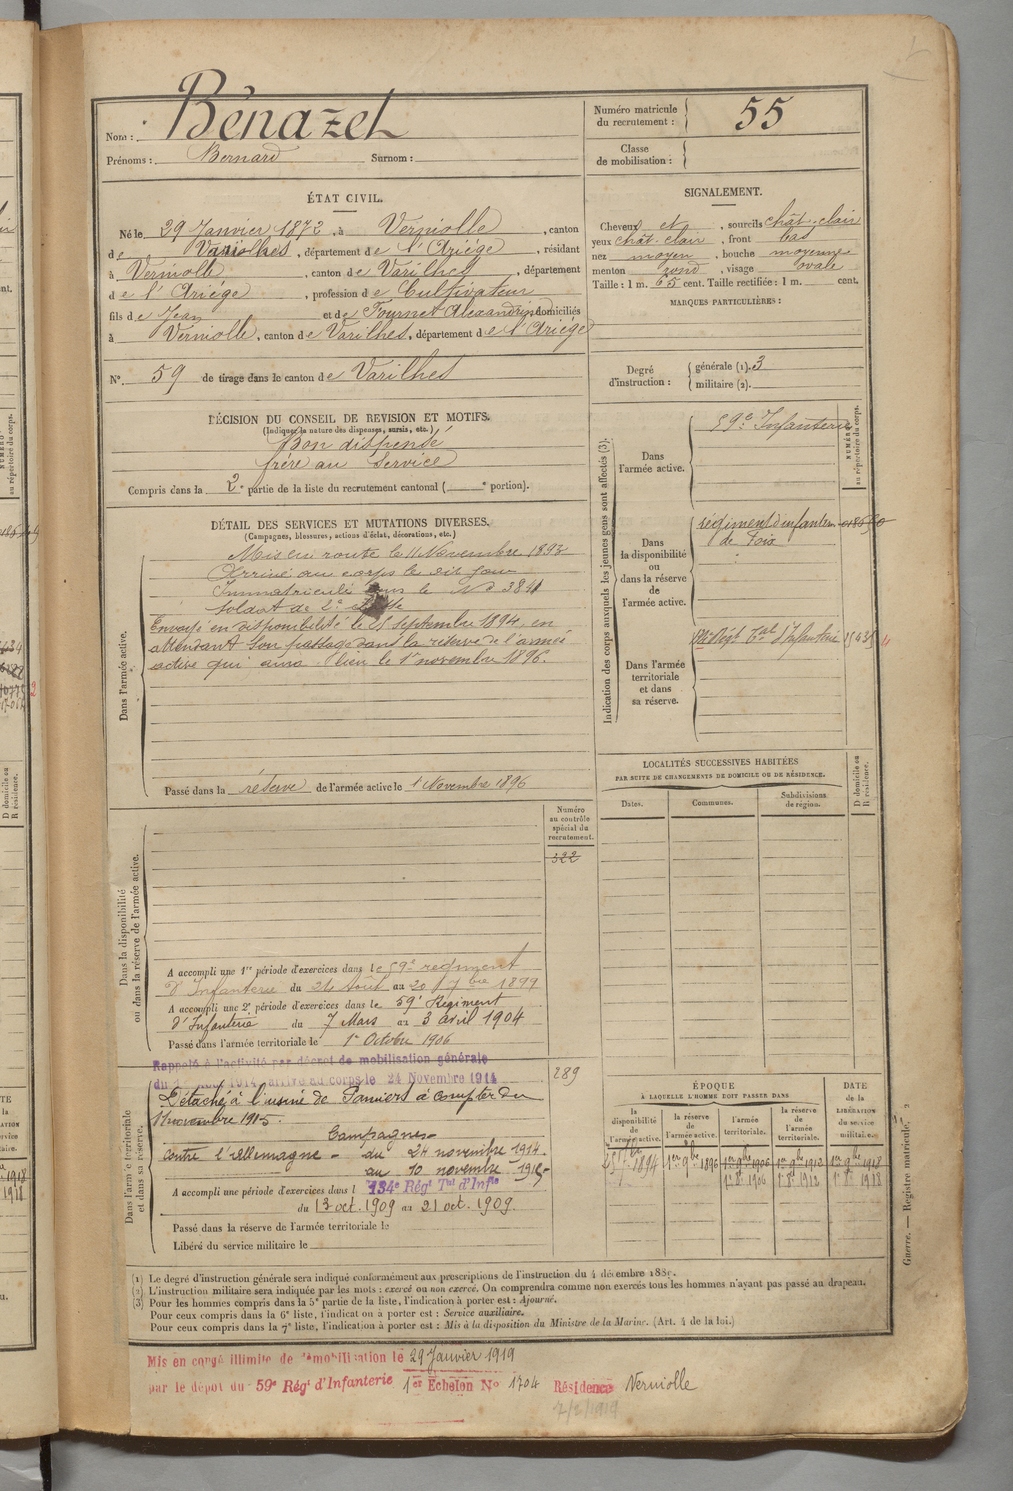 Nom : Bénazet
Prénoms : Bernard Surnom :
Numéro matricule
du recrutement : 55
Classe
de mobilisation :
ÉTAT CIVIL.
Né le 29 Janvier 1872, à Verniolle, canton
de Varilhes, département de l'Ariége, résidant
à Verniolle, canton de Varilhes, département
de l'Ariége, profession de Cultivateur
fils de Jean et de Fournet Alexandrine domiciliés
à Verniolle, canton de Varilhes, département de l'Ariége
N°. 59 de tirage dans le canton de Varilhes
SIGNALEMENT.
Cheveux et, sourcils chât. clair
yeux chât. clair, front bas
nez moyen, bouche moyenne
menton rond, visage ovale
Taille : 1 m. 65 cent. Taille rectifiée : 1 m. cent.
MARQUES PARTICULIÈRES :
Degré
d'instruction :
générale (1). 3
militaire (2).
DÉCISION DU CONSEIL DE REVISION ET MOTIFS.
(Indiquer la nature des dispenses, sursis, etc.)
Bon dispensé
frère au service
Compris dans la 2e partie de la liste du recrutement cantonal ( e portion).
DÉTAIL DES SERVICES ET MUTATIONS DIVERSES.
(Campagnes, blessures, actions d'éclat, décorations, etc.)
Dans l'armée active.
Mis en route le 11 Novembre 1893
Arrivé au corps le dit jour
Immatriculé sous le No 3841
Soldat de 2e classe
Envoyé en disponibilité le 25 septembre 1894, en
attendant son passage dans la réserve de l'armée
active qui aura lieu le 1er novembre 1896.
Passé dans la réserve de l'armée active le 1 Novembre 1896
Indication des corps auxquels les jeunes gens sont affectés (3).
Dans
l'armée active.
59e Infanterie
NUMÉRO
au répertoire du corps.
Dans
la disponibilité
ou
dans la réserve
de
l'armée active.
régiment d'infanterie
de Foix
Dans l'armée
territoriale
et dans
sa réserve.
Régt Tal d'Infanterie
LOCALITÉS SUCCESSIVES HABITÉES
PAR SUITE DE CHANGEMENTS DE DOMICILE OU DE RÉSIDENCE.
Dates. Communes. Subdivisions
de région.
D domicile ou
R résidence.
Numéro
au contrôle
spécial du
recrutement.
322
Dans la disponibilité
ou dans la réserve de l'armée active.
A accompli une 1re période d'exercices dans le 59e régiment
d'Infanterie du 24 Août au 20 7bre 1899
A accompli une 2e période d'exercices dans le 59e Régiment
d'Infanterie du 7 Mars au 3 avril 1904
Passé dans l'armée territoriale le 1er Octobre 1906
Dans l'armée territoriale
et dans sa réserve.
Rappelé à l'activité par décret de mobilisation générale
du 1er Août 1914 arrivé au corps le 24 Novembre 1914
289
Détaché à l'usine de Pamiers à compter du
11 novembre 1915.
Campagnes
contre l'Allemagne - du 24 novembre 1914.
au 10 novembre 1915
A accompli une période d'exercices dans l 134e Régt Tal d'Infie
du 13 oct. 1909 au 21 oct. 1909.
Passé dans la réserve de l'armée territoriale le
Libéré du service militaire le
ÉPOQUE
À LAQUELLE L'HOMME DOIT PASSER DANS
DATE
de la
LIBÉRATION
du service
militaire.
la
disponibilité
de
l'armée active.
la réserve
de
l'armée active.
l'armée
territoriale.
la réserve
de
l'armée
territoriale.
25 7bre 1894 1er 9bre 1896 1er 9bre 1906 1er 9bre 1912 1er 9bre 1918
1er 8bre 1906 1er 8bre 1912 1er 8bre 1918
Guerre. — Registre matricule.
(1) Le degré d'instruction générale sera indiqué conformément aux prescriptions de l'instruction du 4 décembre 1889.
(2) L'instruction militaire sera indiquée par les mots : exercé ou non exercé. On comprendra comme non exercés tous les hommes n'ayant pas passé au drapeau.
(3) Pour les hommes compris dans la 5e partie de la liste, l'indication à porter est : Ajourné.
Pour ceux compris dans la 6e liste, l'indication à porter est : Service auxiliaire.
Pour ceux compris dans la 7e liste, l'indication à porter est : Mis à la disposition du Ministre de la Marine. (Art. 4 de la loi.)
Mis en congé illimité de démobilisation le 29 Janvier 1919
par le dépôt du 59e Régt d'Infanterie 1er Echelon No 1704 Résidence Verniolle
7/2/1919